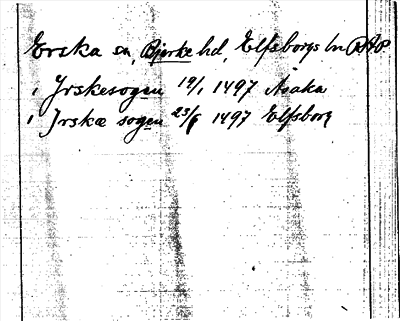 Erska sn, Bjerke hd, Elfsborgs ln RAP
i Yrskesogen 19/1 1497 Åsaka
i Irskæ sogen 23/6 1497 Elfsborg